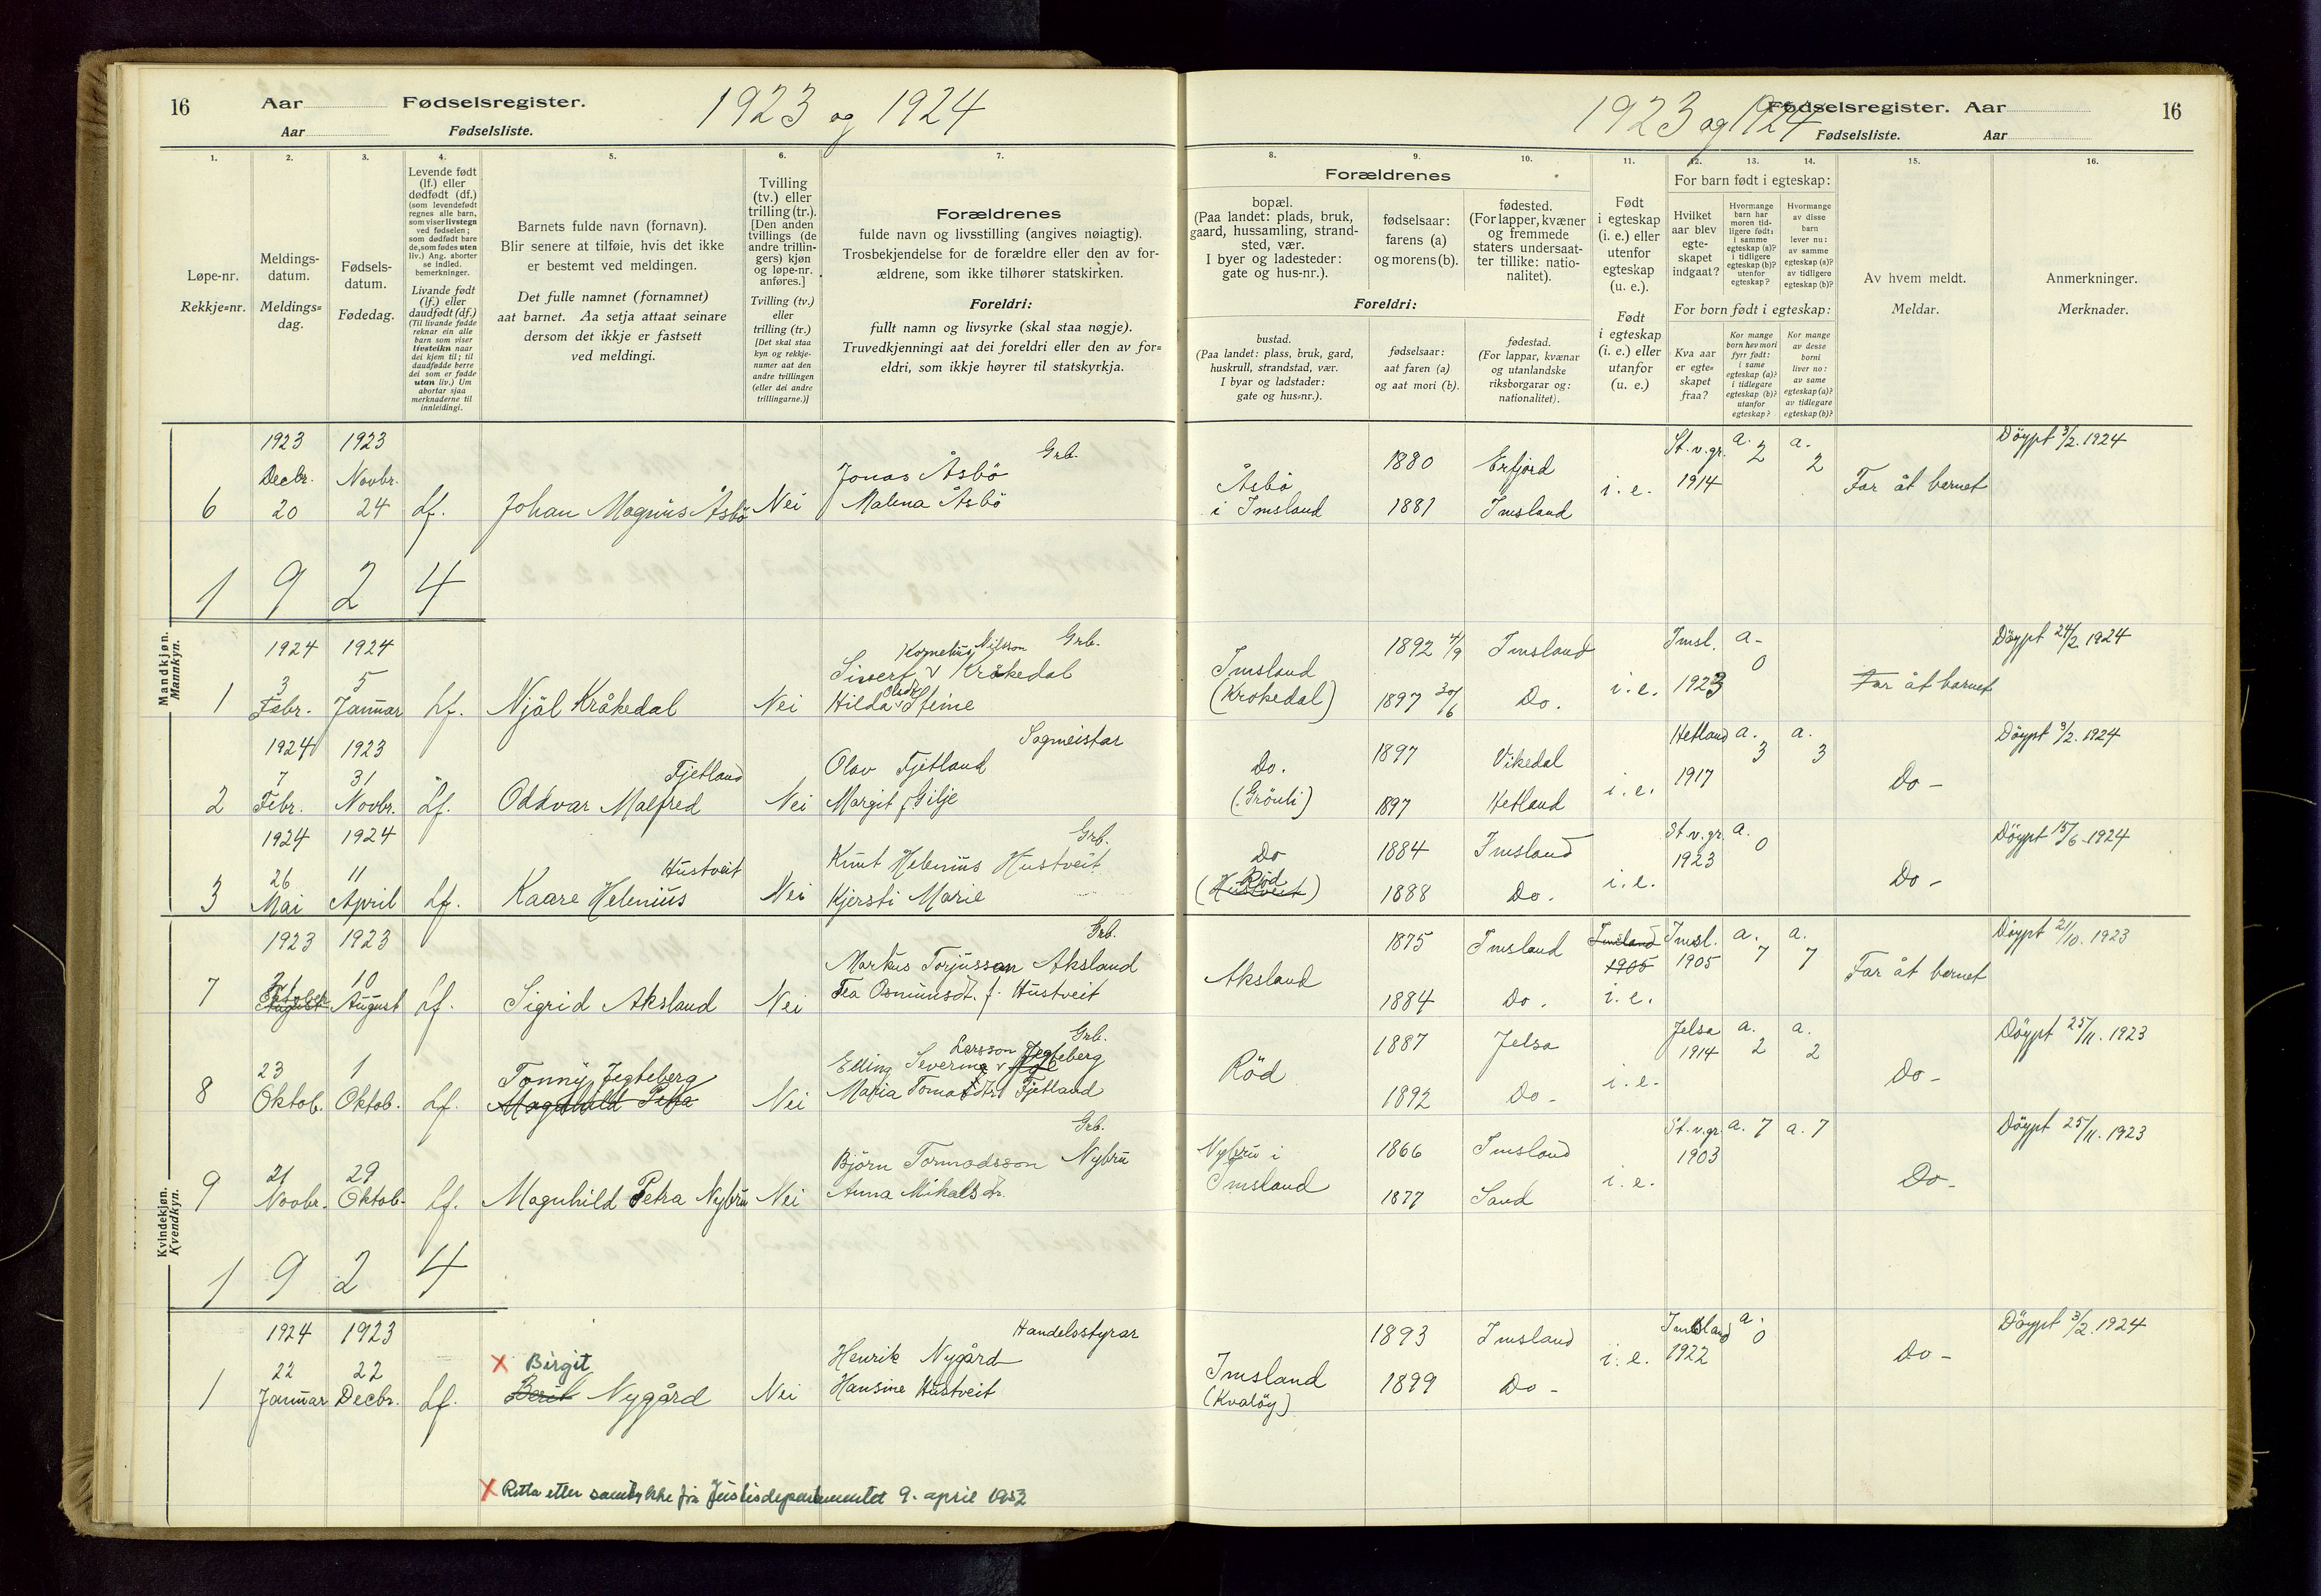 16 Aar Fødselsregister. 1923 og 1924
Aar Fødselsliste.
1923 og 1924 Fødselsregister. Aar 16
Fødselsliste. Aar
1. 2. 3. 4. 5. 6. 7.
Løpe-nr.
Rekkje=nr.
Meldings-
datum.
Meldings=
dag.
Fødsels-
datum.
Fødedag.
Levende født
(lf.) eller
dødfødt (df.)
(som levendefødt
regnes alle barn,
som viser livstegn
ved fødselen;
som dødfødt bare
de, som fødes uten
liv.) Ang. aborter
se indled.
bemerkninger.
Livande født
(lf.) eller
daudfødt (df.)
(Til livande fødde
reknar ein alle
barn som viser
livsteikn naar
dei kjem til; til
daudfødde berre
dei som er fødde
utan liv.) Um
abortar sjaa
merknaderne til
innleidingi.
Barnets fulde navn (fornavn).
Blir senere at tilføie, hvis det ikke
er bestemt ved meldingen.
Det fulle namnet (fornamnet)
aat barnet. Aa setja attaat seinare
dersom det ikkje er fastsett
ved meldingi.
Tvilling
(tv.) eller
trilling (tr.).
[Den anden
tvillings (de
andre trillin-
gers) kjøn
og løpe-nr.
anføres.]
Tvilling (tv.)
eller
trilling (tr.)
[Det skal staa
kyn og rekkje-
numer aat den
andre tvillingen
(eller dei andre
trillingarne.)]
Forældrenes
fulde navn og livsstilling (angives nøiagtig).
Trosbekjendelse for de forældre eller den av for-
ældrene, som ikke tilhører statskirken.
Foreldri:
fullt namn og livsyrke (skal staa nøgje).
Truvedkjenningi aat dei foreldri eller den av for=
eldri, som ikkje høyrer til statskyrkja.
8. 9. 10. 11. 12. 13. 14. 15. 16.
Forældrenes
bopæl.
(Paa landet: plads, bruk,
gaard, hussamling, strand-
sted, vær.
I byer og ladesteder:
gate og hus-nr.).
fødselsaar:
farens (a)
og morens (b).
fødested.
(For lapper, kvæner
og fremmede
staters undersaat-
ter tillike: natio-
nalitet).
Foreldri:
bustad.
(Paa landet: plass, bruk, gard,
huskrull, strandstad, vær.
I byar og ladstader:
gate og hus=nr.).
fødselsaar:
aat faren (a)
og aat mori (b).
fødestad.
(For lappar, kvænar
og utanlandske
riksborgarar og:
nationalitet).
Født
i egteskap
(i. e.) eller
utenfor
egteskap
(u. e.).
Født
i egteskap
(i. e.) eller
utanfor
(u. e.)
For barn født i egteskap:
Hvilket
aar blev
egte-
skapet
indgaat?
Hvormange
barn har
moren tid-
ligere født:
i samme
egteskap (a)?
i tidligere
egteskap (b)?
utenfor
egteskap?
Hvormange
av disse
barn
lever nu:
av samme
egteskap (a)?
av tidligere
egteskap (b)?
For born født i egteskap:
Kva aar
er egte=
skapet
fraa?
Kor mange
born hev mori
fyrr født:
i same
egteskap (a)?
i tidlegare
egteskap (b)?
utanfor
egteskap?
Kor mange
av desse
borni
liver no:
av same
egteskap (a)?
av tidlegare
egteskap (b)?
Av hvem meldt.
Meldar.
Anmerkninger.
Merknader.
Mandkjøn.
Mannkyn.
1923 1923 Grb. St.v.gr. a. 2 a. 2 Döypt 3/2. 1924
Decbr. Novbr. Jonas Åsbö Åsbö 1880 Erfjord 1914
6 20 24 Lf. Johan Magnus Åsbö Nei Malena Åsbö i Imsland 1881 Imsland i. e. Far åt barnet
1 9 2 4
1924 1924 Kornelius Nilsson Grb. 1892 4/9 Imsland Imsl. a- 0 Döypt 24/2. 1924
3 5 Sivert v Kråkedal Imsland
1 Febr. Januar Lf. Njål Kråkedal Nei Hilda Stine (Krokedal) 1897 30/6 Do. i. e. 1923 Far åt barnet
1924 1923 Sagmeistar Hetland a. 3 a. 3 Döypt 3/2. 1924
7 31 Fjetland Olav Fjetland Do. 1897 Vikedal 1917
2 Febr. Novbr. Lf. Oddvar Malfred Nei Margit f. Gilje (Grönli) 1897 Hetland i. e. Do -
1924 1924 Grb. St.v.gr. a. 0 Döypt 15/6 1924
26 11 Hustveit Knut Helenius Hustveit Do 1884 Imsland 1923
3 Mai April Lf. Kaare Helenius Nei Kjersti Marie (Hustveit) Röd 1888 Do. i. e. Do -
Kvindekjøn.
Kvendkyn.
1923 1923 Grb. 1875 Imsland Imsland Imsl. a. 7 a. 7 Döypt 21/10. 1923
21 10 Markus Torjusson Aksland Aksland 1905 1905
7 August Lf. Sigrid Aksland Nei Tea Osmunsdt. f. Hustveit 1884 Do. i. e. Far åt barnet
Larsson Grb. 1887 Jelsa Jelsa a. 2 a. 2 Döypt 25/11. 1923
23 1 Tonny Jegteberg Elling Severin v Jegteberg Röd 1914
8 Oktob. Oktob. Lf. Magnhild Petra Nei Maria Fjetland 1892 Do - i. e. Do -
Grb. St.v.gr. a. 7 a. 7 Döypt 25/11. 1923
21 29 Björn Tormodsson Nybru Nybru i 1866 Imsland 1903
9 Novbr. Oktob. Lf. Magnhild Petra Nybru Nei Anna Mikalsdr. Imsland 1877 Sand i. e. Do -
1 9 2 4
1924 1923 Handelsstyrar 1893 Imsland Imsland a. 0 Döypt 3/2. 1924
22 22 x Birgit Henrik Nygård Imsland 1922
1 Januar Decbr. Lf. Berit Nygård Nei Hansine Hustveit (Kvaløy) 1899 Do - i. e. Do -
x Retta etter samtykke frå Justisdepartementet 9. april 1953